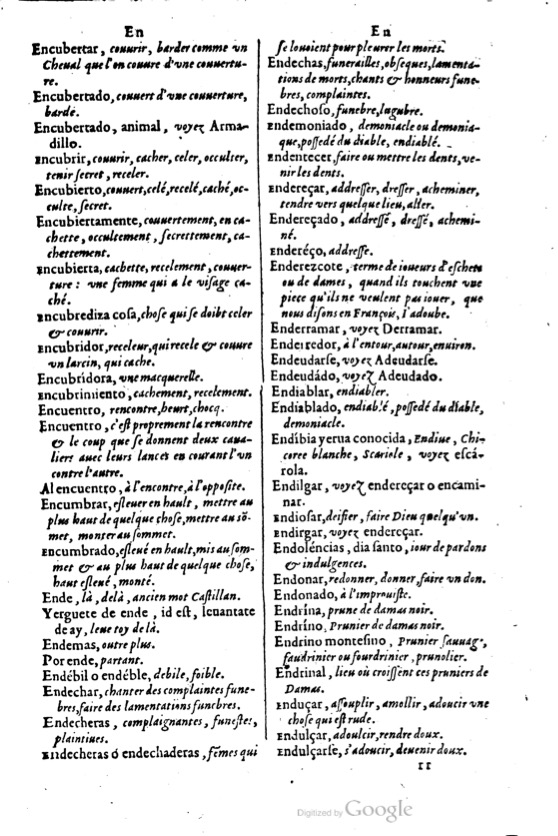 En
Encubertar, couurir, barder comme vn
Cheual que l'on couure d'vne couuertu-
re.
Encubertado, couuert d'vne couuerture,
bardé.
Encubertado, animal, voyez Arma-
dillo.
Encubrir, couurir, cacher, celer, occulter,
tenir secret, receler.
Encubierto, couuert, celé, recelé, caché, oc-
culte, secret.
Encubiertamente, couuertement, en ca-
chette, occultement, secrettement, ca-
chettement.
Encubierta, cachette, recelement, couuer-
ture: vne femme qui a le visage ca-
ché.
Encubrediza cosa, chose qui se doibt celer
& couurir.
Encubridor, receleur, qui recele & couure
vn larcin, qui cache.
Encubrídora, vne macquerelle.
Encubrimiento, cachement, recelement.
Encuentro, rencontre, heurt, chocq.
Encuentro, c'est proprement la rencontre
& le coup que se donnent deux caua-
liers auec leurs lances en courant l'vn
contre l'autre.
Al encuentro, à l'encontre, à l'opposite.
Encumbrar, esleuer en hault, mettre au
plus haut de quelque chose, mettre au sō-
met, monter au sommet.
Encumbrado, esleué en hault, mis au som-
met & au plus haut de quelque chose,
haut esleué, monté.
Ende, là, delà, ancien mot Castillan.
Yerguete de ende, id est, leuantate
de ay, leue toy de là.
Endemas, outre plus.
Por ende, partant.
Endébil o endéble, debile, foible.
Endechar, chanter des complaintes fune-
bres, faire des lamentations funebres.
Endecheras, complaignantes, funestes,
plaintiues.
Endecheras ó endechaderas, fémes qui
En
se louoient pour pleurer les morts.
Endechas, funerailles, obseques, lamenta-
tions de morts, chants & honneurs fune-
bres, complaintes.
Endechoso, funebre, lugubre.
Endemoniado, demoniacle ou demonia-
que, possedé du diable, endiablé.
Endentecer, faire ou mettre les dents, ve-
nir les dents.
Endereçar, addresser, dresser, acheminer,
tendre vers quelque lieu, aller.
Endereçado, addressé, dressé, achemi-
né.
Enderéço, addresse.
Enderezcote, terme de ioueurs d'eschets
ou de dames, quand ils touchent vne
piece qu'ils ne veulent pas iouer, que
nous disons en François, l'adoube.
Enderramar, voyez Derramar.
Endeiredor, à l'entour, autour, enuiron.
Endeudarse, voyez Adeudarse.
Endeudádo, voyez Adeudado.
Endiablar, endiabler.
Endíablado, endiablé, possedé du diable,
demoniacle.
Endíbia yerua conocida, Endiue, Chi-
coree blanche, Scariole, voyez escá-
rola.
Endilgar, voyez endereçar o encami-
nar.
Endiosar, deifier, faire Dieu quelqu'vn.
Endirgar, voyez endereçar.
Endoléncias, dia santo, iour de pardons
& indulgences.
Endonar, redonner, donner, faire vn don.
Endonado, à l'improuiste.
Endrína, prune de damas noir.
Endríno, Prunier de damas noir.
Endrino montesino, Prunier sauuage,
faudrinier ou fourdrinier, prunolier.
Endrinal, lieu où croissent ces pruniers de
Damas.
Enduçar, assouplir, amollir, adoucir vne
chose qui est rude.
Endulçar, adoulcir, rendre doux.
Endulçarse, s'adoucir, deuenir doux.
II
Digitized by Google